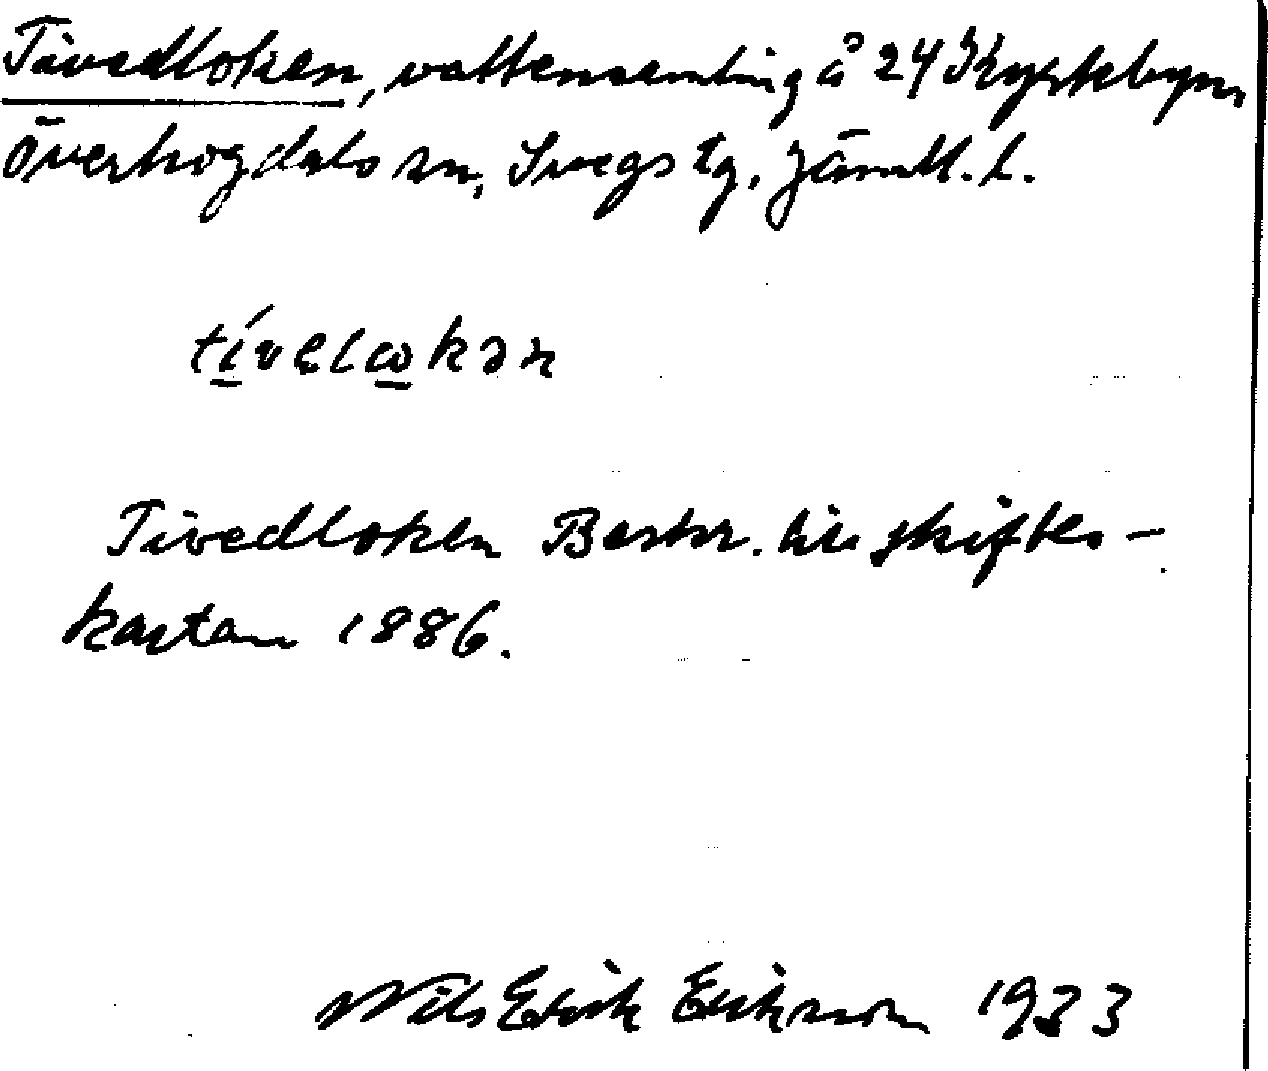 Tivedloken, vattensamling å 24 Kyrkbyn,
Överhogdals sn, Svegs tg, Jämtl. l.
tívelωkən
Tivedloken Beskr. till skiftes-
kartan 1886.
Nils Erik Erikson 1933